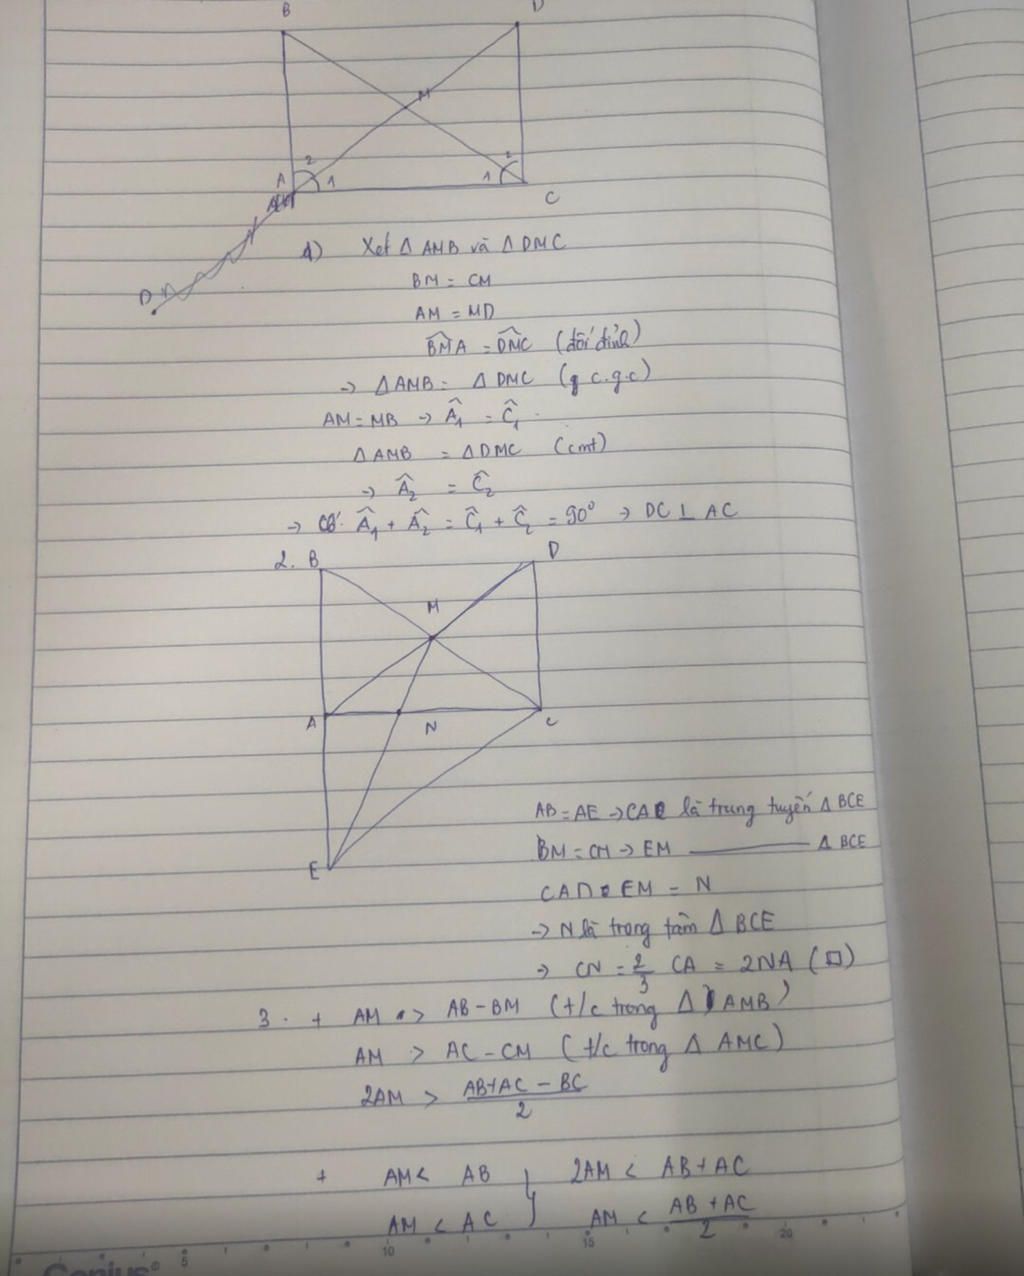 B
D
M
A 2 1
1 2
C
D
1) Xét Δ AMB và Δ DMC
BM = CM
AM = MD
\widehat{BMA} = \widehat{DMC} (đối đỉnh)
→ Δ AMB = Δ DMC (c.g.c)
AM = MB → \widehat{A_1} = \widehat{C_1}
Δ AMB = Δ DMC (cmt)
→ \widehat{A_2} = \widehat{C_2}
→ Có: \widehat{A_1} + \widehat{A_2} = \widehat{C_1} + \widehat{C_2} = 90° → DC ⊥ AC
2. B
D
M
A
N
C
E
AB = AE → CA là trung tuyến Δ BCE
BM = CM → EM ——— Δ BCE
CA ∩ EM = N
→ N là trọng tâm Δ BCE
→ CN = \frac{2}{3} CA = 2NA (□)
3. + AM > AB - BM (t/c trong Δ AMB)
AM > AC - CM (t/c trong Δ AMC)
2AM > \frac{AB + AC - BC}{2}
+ AM < AB } 2AM < AB + AC
AM < AC } AM < \frac{AB + AC}{2}
5 10 15 20
Genius®